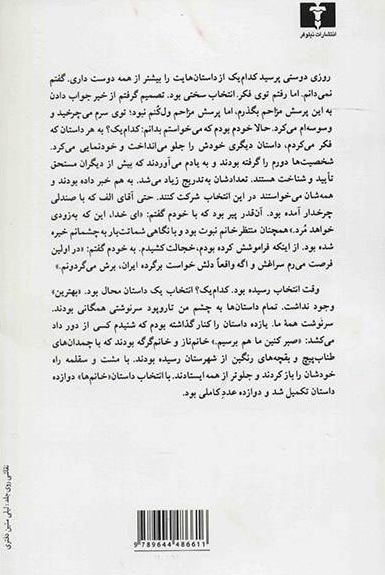 انتشارات نیلوفر
روزی دوستی پرسید کدام‌یک از داستان‌هایت را بیشتر از همه دوست داری. گفتم
نمی‌دانم. اما رفتم توی فکر. انتخاب سختی بود. تصمیم گرفتم از خیر جواب دادن
به این پرسش مزاحم بگذرم. اما پرسش مزاحم ول‌کُنم نبود؛ توی سرم می‌چرخید و
وسوسه‌ام می‌کرد. حالا خودم بودم که می‌خواستم بدانم: کدام‌یک؟ به هر داستان که
فکر می‌کردم، داستان دیگری خودش را جلو می‌انداخت و خودنمایی می‌کرد.
شخصیت‌ها دورم را گرفته بودند و به یادم می‌آوردند که بیش از دیگران مستحق
تأیید و شناخت هستند. تعدادشان به‌تدریج زیاد می‌شد. به هم خبر داده بودند و
همه‌شان می‌خواستند در این انتخاب شرکت کنند. حتی آقای الف که با صندلی
چرخدار آمده بود. آن‌قدر پیر بود که با خودم گفتم: «ای خدا، این که به‌زودی
خواهد مُرد.» همچنان منتظر خانم نبوت بود و با نگاهی شماتت‌بار به چشمانم خیره
شده بود. از اینکه فراموشش کرده بودم، خجالت کشیدم. به خودم گفتم: «در اولین
فرصت می‌رم سراغش و اگه واقعاً دلش خواست برگرده ایران، برش می‌گردونم.»
وقت انتخاب رسیده بود. کدام‌یک؟ انتخاب یک داستان محال بود. «بهترین»
وجود نداشت. تمام داستان‌ها به چشم من تاروپود سرنوشتی همگانی بودند.
سرنوشت همهٔ ما. یازده داستان را کنار گذاشته بودم که شنیدم کسی از دور داد
می‌کشد: «صبر کنین ما هم برسیم.» خانم‌ناز و خانم‌گرگه بودند که با چمدان‌های
طناب‌پیچ و بقچه‌های رنگین از شهرستان رسیده بودند. با مشت و سقلمه راه
خودشان را باز کردند و جلوتر از همه ایستادند. با انتخاب داستان «خانم‌ها» دوازده
داستان تکمیل شد و دوازده عددِ کاملی بود.
نقاشی روی جلد: لیلی متین دفتری
9 789644 486611